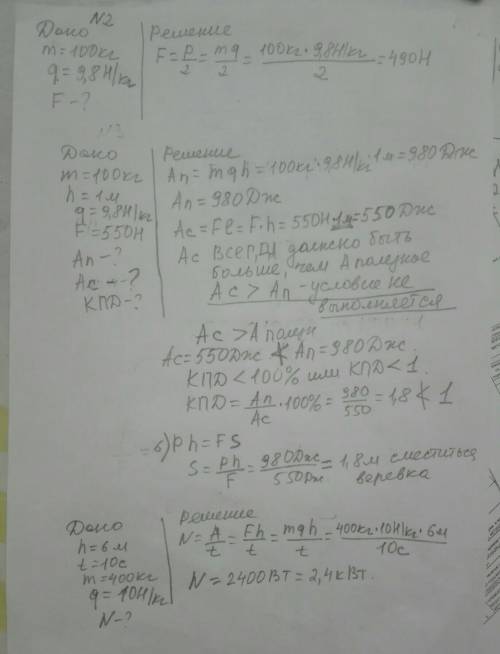 N2
Дано
m=100кг
g=9,8Н/кг
F-?
Решение
F=P/2=mg/2=100кг·9,8Н/кг/2=490Н
N3
Дано
m=100кг
h=1м
g=9,8Н/кг
F=550Н
Aп-?
Aс-?
КПД-?
Решение
Aп=mgh=100кг·9,8Н/кг·1м=980Дж
Aп=980Дж
Aс=Fl=F·h=550Н·1м=550Дж
Aс ВСЕГДА должно быть
больше, чем A полезное
Aс>Aп-условие не
выполняется
Aс>A полезн
Aс=550Дж ≮ Aп=980Дж.
КПД<100% или КПД<1.
КПД=Aп/Aс·100%=980/550=1,8≮1
б) Ph=FS
S=Ph/F=980Дж/550Дж=1,8м сместиться
веревка
Дано
h=6м
t=10с
m=400кг
g=10Н/кг
N-?
Решение
N=A/t=Fh/t=mgh/t=400кг·10Н/кг·6м/10с
N=2400Вт=2,4кВт.